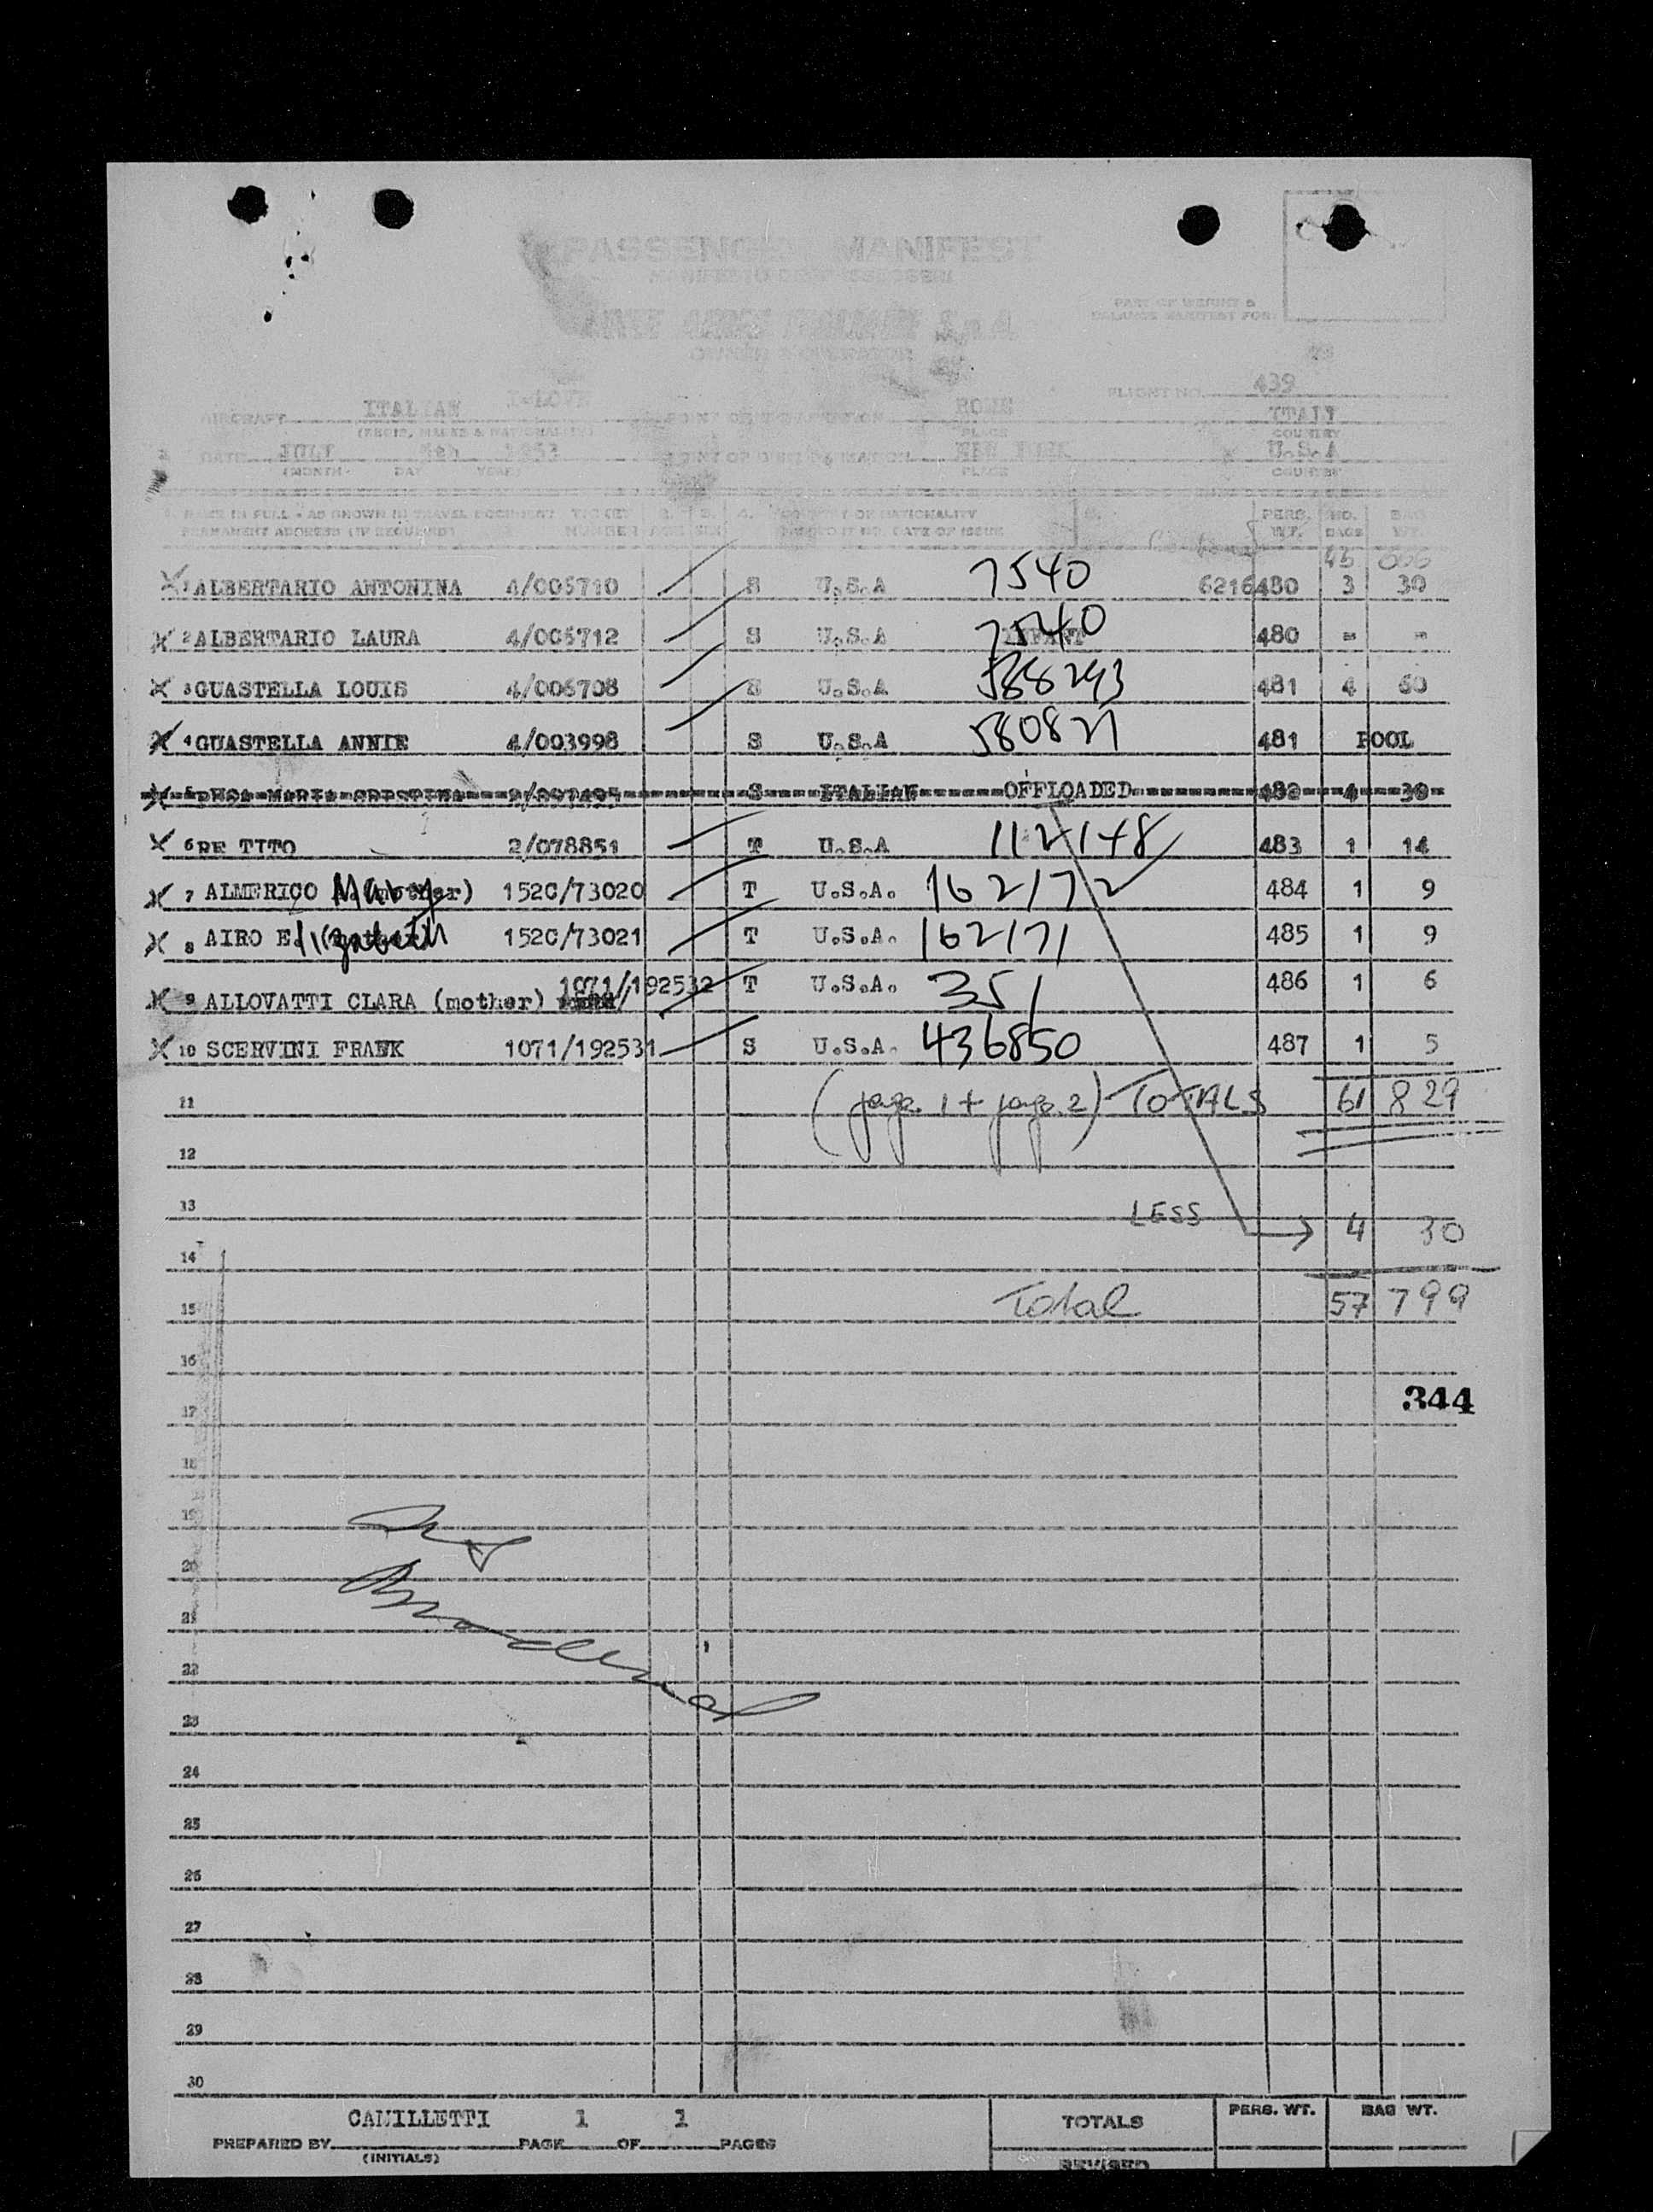 PASSENGER MANIFEST
OWNER & OPERATOR
PART OF WEIGHT &
BALANCE MANIFEST FOR:
FLIGHT NO. 439
AIRCRAFT ITALIAN I-LOVE ROME ITALY
PLACE COUNTRY
DATE JULY 1953 NEW YORK U.S.A
(MONTH DAY YEAR) PLACE COUNTRY
NAME IN FULL - AS SHOWN IN TRAVEL DOCUMENT TICKET COUNTRY OF NATIONALITY PERS. NO. BAG
PERMANENT ADDRESS (IF REQUIRED) NUMBER AGE SEX DATE OF ISSUE WT. BAGS WT.
1 ALBERTARIO ANTONINA 4/006710 S U.S.A 7540 6216480 3 30
2 ALBERTARIO LAURA 4/006712 S U.S.A INFANT 7540 480 - -
3 GUASTELLA LOUIS 4/006708 S U.S.A 588293 481 4 60
4 GUASTELLA ANNIE 4/003998 S U.S.A 580821 481 POOL
5 MARIA CRISTINA S ITALIAN OFFLOADED 482 4 30
6 RE TITO 2/078851 T U.S.A 112148 483 1 14
7 ALMERICO Mary 152C/73020 T U.S.A. 162172 484 1 9
8 AIRO Elizabeth 152C/73021 T U.S.A. 162171 485 1 9
9 ALLOVATTI CLARA (mother) 1071/192532 T U.S.A. 351 486 1 6
10 SCERVINI FRANK 1071/192531 S U.S.A. 436850 487 1 5
11 (page 1 + page 2) TOTALS 61 829
12
13 LESS 4 30
14
15 Total 57 799
16
344
17
18
19
20
21
22
23
24
25
26
27
28
29
30
CAMILLETTI 1 1
PREPARED BY PAGE OF PAGES
(INITIALS)
TOTALS PERS. WT. BAG WT.
REVISED